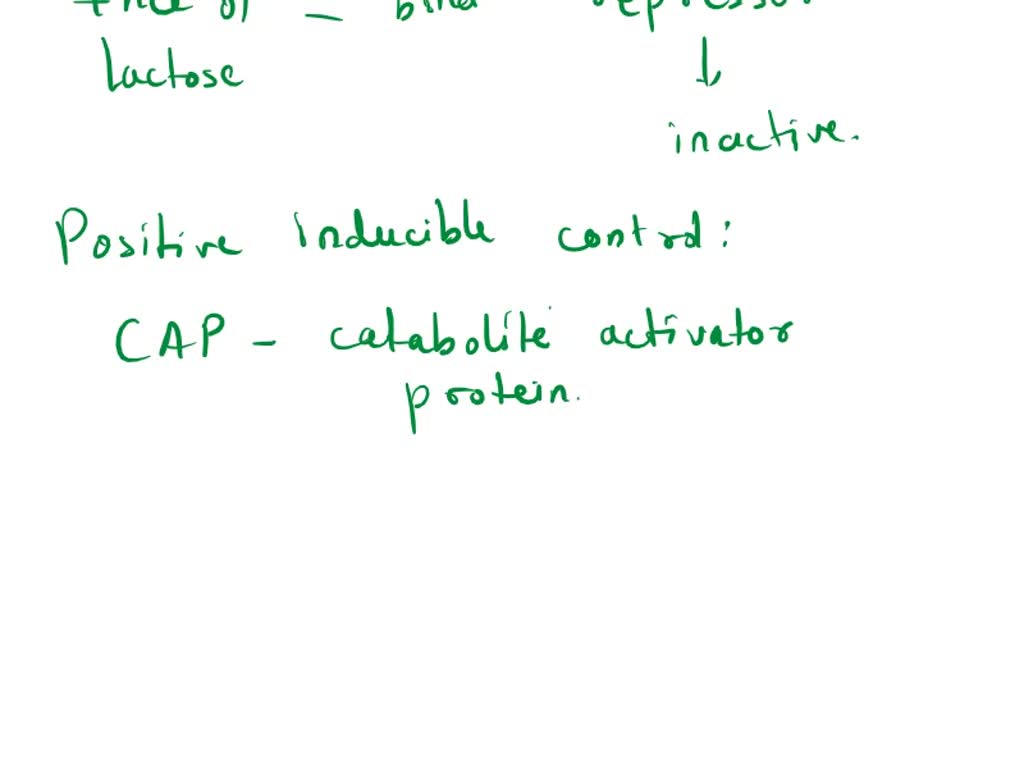 of – bind repressor
lactose ↓
inactive.
Positive inducible control:
CAP – catabolite activator
protein.